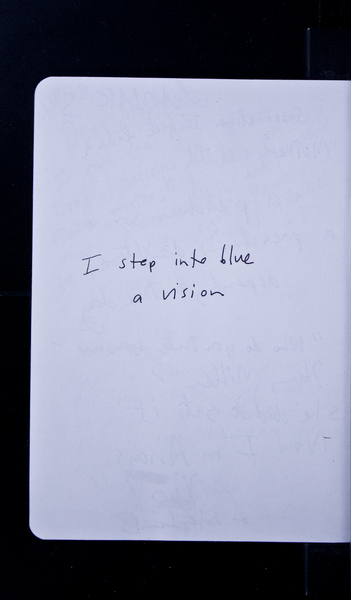 I step into blue
a vision